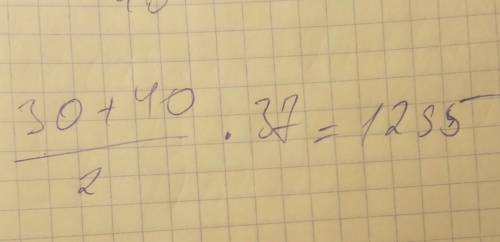 30+40
2
. 37 = 1295